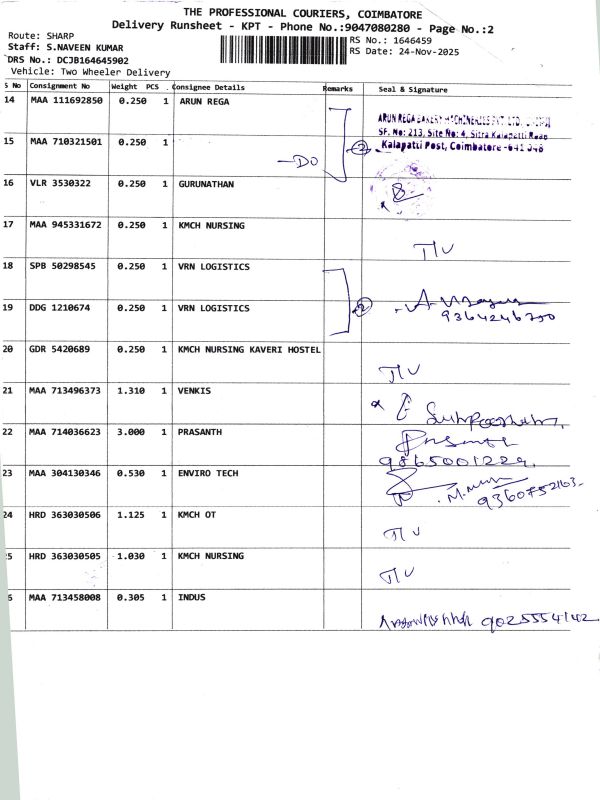 THE PROFESSIONAL COURIERS, COIMBATORE
Delivery Runsheet - KPT - Phone No.:9047080280 - Page No.:2
Route: SHARP
RS No.: 1646459
Staff: S.NAVEEN KUMAR
RS Date: 24-Nov-2025
DRS No.: DCJB164645902
Vehicle: Two Wheeler Delivery
S No Consignment No Weight PCS . Consignee Details Remarks Seal & Signature
14 MAA 111692850 0.250 1 ARUN REGA
ARUN REGA BAKERY MACHINERIES PVT. LTD.,
SF. No: 213, Site No: 4, Sitra Kalapatti Road
15 MAA 710321501 0.250 1 Kalapatti Post, Coimbatore - 641 048
DO 2
16 VLR 3530322 0.250 1 GURUNATHAN
17 MAA 945331672 0.250 1 KMCH NURSING
T/U
18 SPB 50298545 0.250 1 VRN LOGISTICS
19 DDG 1210674 0.250 1 VRN LOGISTICS 2
9364246750
20 GDR 5420689 0.250 1 KMCH NURSING KAVERI HOSTEL
T/U
21 MAA 713496373 1.310 1 VENKIS
22 MAA 714036623 3.000 1 PRASANTH
Prasanth
9865001229
23 MAA 304130346 0.530 1 ENVIRO TECH
9360752163
24 HRD 363030506 1.125 1 KMCH OT
T/U
5 HRD 363030505 1.030 1 KMCH NURSING
T/U
6 MAA 713458008 0.305 1 INDUS
9025554142